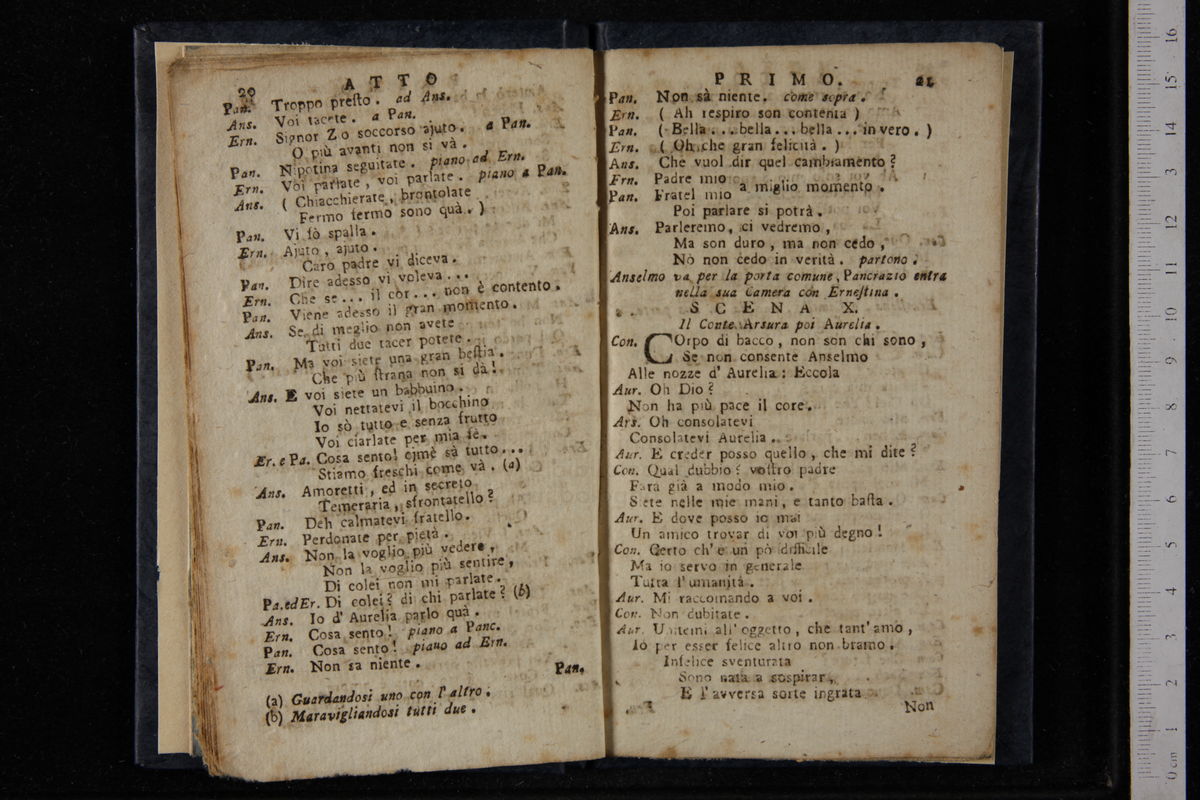 20
ATTO
Pan. Troppo presto. ad Ans.
Ans. Voi tacete. a Pan.
Ern. Signor Zo soccorso ajuto. a Pan.
O più avanti non si và.
Pan. Nipotina seguitate. piano ad Ern.
Ern. Voi parlate, voi parlate. piano a Pan.
Ans. ( Chiacchierate, brontolate
Fermo fermo sono quà. )
Pan. Vi fò spalla.
Ern. Ajuto, ajuto.
Caro padre vi diceva.
Pan. Dire adesso vi voleva...
Ern. Che se... il cor... non è contento.
Pan. Viene adesso il gran momento.
Ans. Se di meglio non avete
Tutti due tacer potete.
Pan. Ma voi siete una gran bestia.
Che più strana non si dà!
Ans. E voi siete un babbuino.
Voi nettatevi il bocchino
Io sò tutto e senza frutto
Voi ciarlate per mia fè.
Er. e Pa. Cosa sento! ejmè sà tutto...
Stiamo freschi come và. (a)
Ans. Amoretti, ed in secreto
Temeraria, sfrontatello?
Pan. Deh calmatevi fratello.
Ern. Perdonate per pietà.
Ans. Non la voglio più vedere,
Non la voglio più sentire,
Di colei non mi parlate.
Pa. ed Er. Di colei? di chi parlate? (b)
Ans. Io d' Aurelia parlo quà.
Ern. Cosa sento! piano a Panc.
Pan. Cosa sento! piano ad Ern.
Ern. Non sa niente.
Pan.
(a) Guardandosi uno con l'altro.
(b) Maravigliandosi tutti due.
PRIMO.
21
Pan. Non sà niente. come sopra.
Ern. ( Ah respiro son contenta )
Pan. ( Bella... bella... bella... in vero. )
Ern. ( Oh che gran felicità. )
Ans. Che vuol dir quel cambiamento?
Ern. Padre mio
Pan. Fratel mio
a miglio momento.
Poi parlare si potrà.
Ans. Parleremo, ci vedremo,
Ma son duro, ma non cedo,
Nò non cedo in verità. partono.
Anselmo va per la porta comune, Pancrazio entra
nella sua Camera con Ernestina.
SCENA X.
Il Conte Arsura poi Aurelia.
Con. COrpo di bacco, non son chi sono,
Se non consente Anselmo
Alle nozze d' Aurelia: Eccola
Aur. Oh Dio?
Non ha più pace il core.
Ars. Oh consolatevi
Consolatevi Aurelia.
Aur. E creder posso quello, che mi dite?
Con. Qual dubbio? vostro padre
Farà già a modo mio.
Siete nelle mie mani, e tanto basta.
Aur. E dove posso io mai
Un amico trovar di voi più degno!
Con. Certo ch' e un pò difficile
Ma io servo in generale
Tutta l'umanità.
Aur. Mi raccomando a voi.
Con. Non dubitate.
Aur. Unitemi all' oggetto, che tant' amo,
Io per esser felice altro non bramo.
Infelice sventurata
Sono nata a sospirar,
E l'avversa sorte ingrata
Non